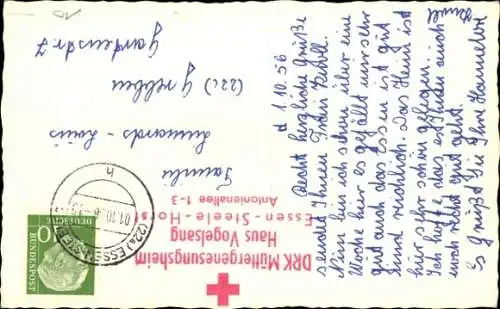 d 1.10.56
Recht herzliche Grüße
sendet Ihnen Frau Knoll.
Nun bin ich schon über eine
Woche hier es gefällt mir sehr
gut auch das Essen ist gut
und reichlich. Das Heim ist
hier sehr schön gelegen.
Ich hoffe das es Ihnen auch
noch recht gut geht.
Es grüßt Sie Ihre Hannelore
Knoll
DRK Müttergenesungsheim
Haus Vogelsang
Essen-Steele-Horst
Antonienallee 1-3
(22a) ESSEN-STEELE
01.10.56
h
DEUTSCHE
BUNDESPOST
10
Familie
Louis
(22c) Grebben
Gartenstr. 7